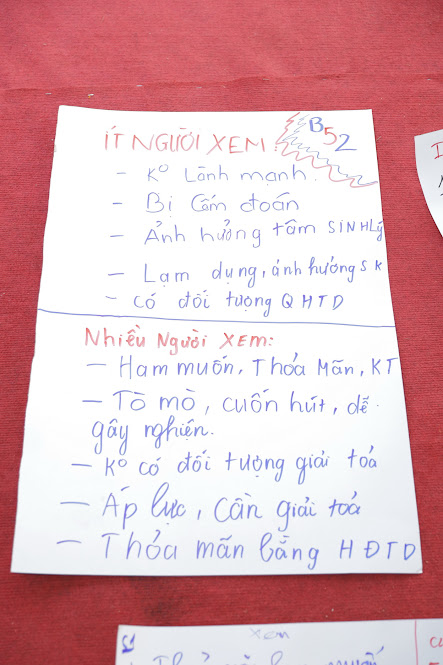 ÍT NGƯỜI XEM: B52
- Kº Lành mạnh.
- Bị Cấm đoán
- Ảnh hưởng tâm SINH Lý
- Lạm dụng, ảnh hưởng SK
- Có đối tượng QHTD
Nhiều Người XEM:
- Ham muốn, Thỏa Mãn, KT
- Tò mò, cuốn hút, dễ
gây nghiện.
- Kº có đối tượng giải toả
- Áp lực, Cần giải toả
- Thỏa mãn bằng HĐTD
xem